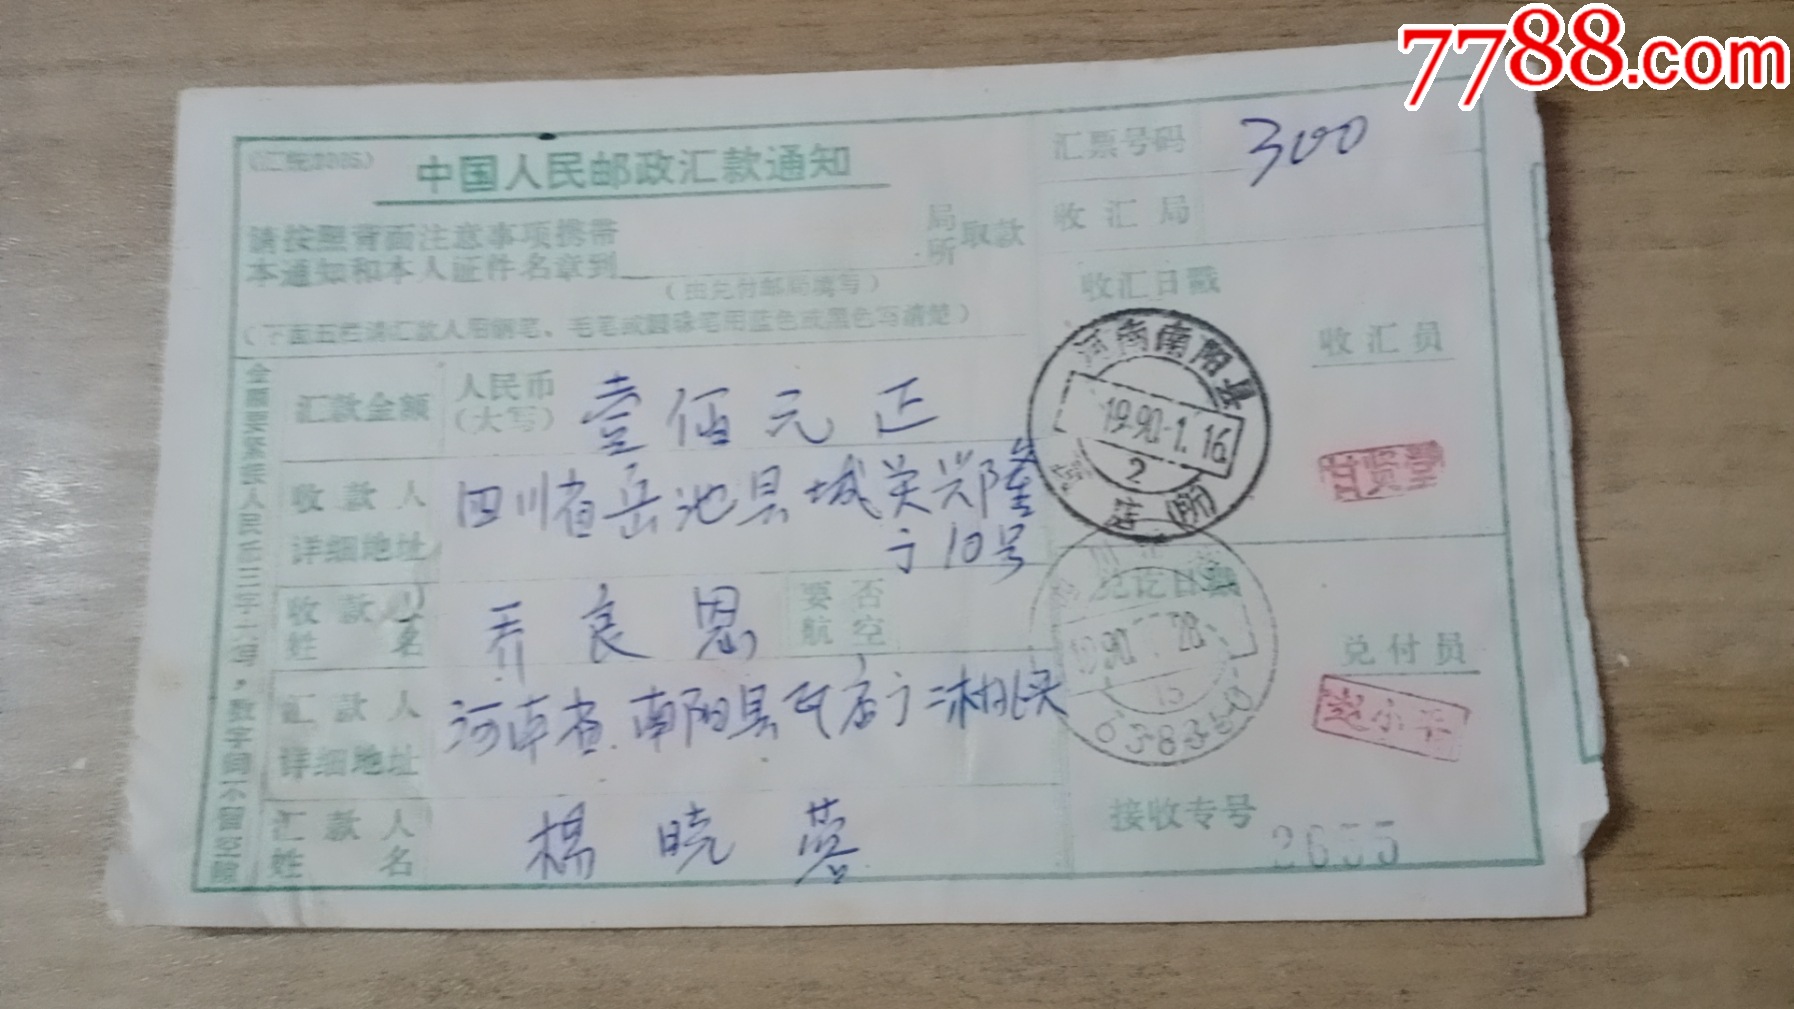 7788.com
中国人民邮政汇款通知
请按照背面注意事项携带
本通知和本人证件名章到 局所取款
(由兑付邮局填写)
(下面五栏请汇款人用钢笔、毛笔或圆珠笔用蓝色或黑色写清楚)
汇票号码 300
收汇局
收汇日戳
收汇员
河南南阳县
1990.1.16
2
甘贤堂
金额要紧接人民币三字大写,数字间不留空隙
汇款金额 人民币(大写) 壹佰元正
收款人详细地址 四川省岳池县城关兴隆
10号
收款人姓名 乔良恩
要否航空
汇款人详细地址 河南省南阳县瓦店
汇款人姓名 楊晓蓉
兑讫日戳
1990 28
638350
兑付员
赵小平
接收专号 2655